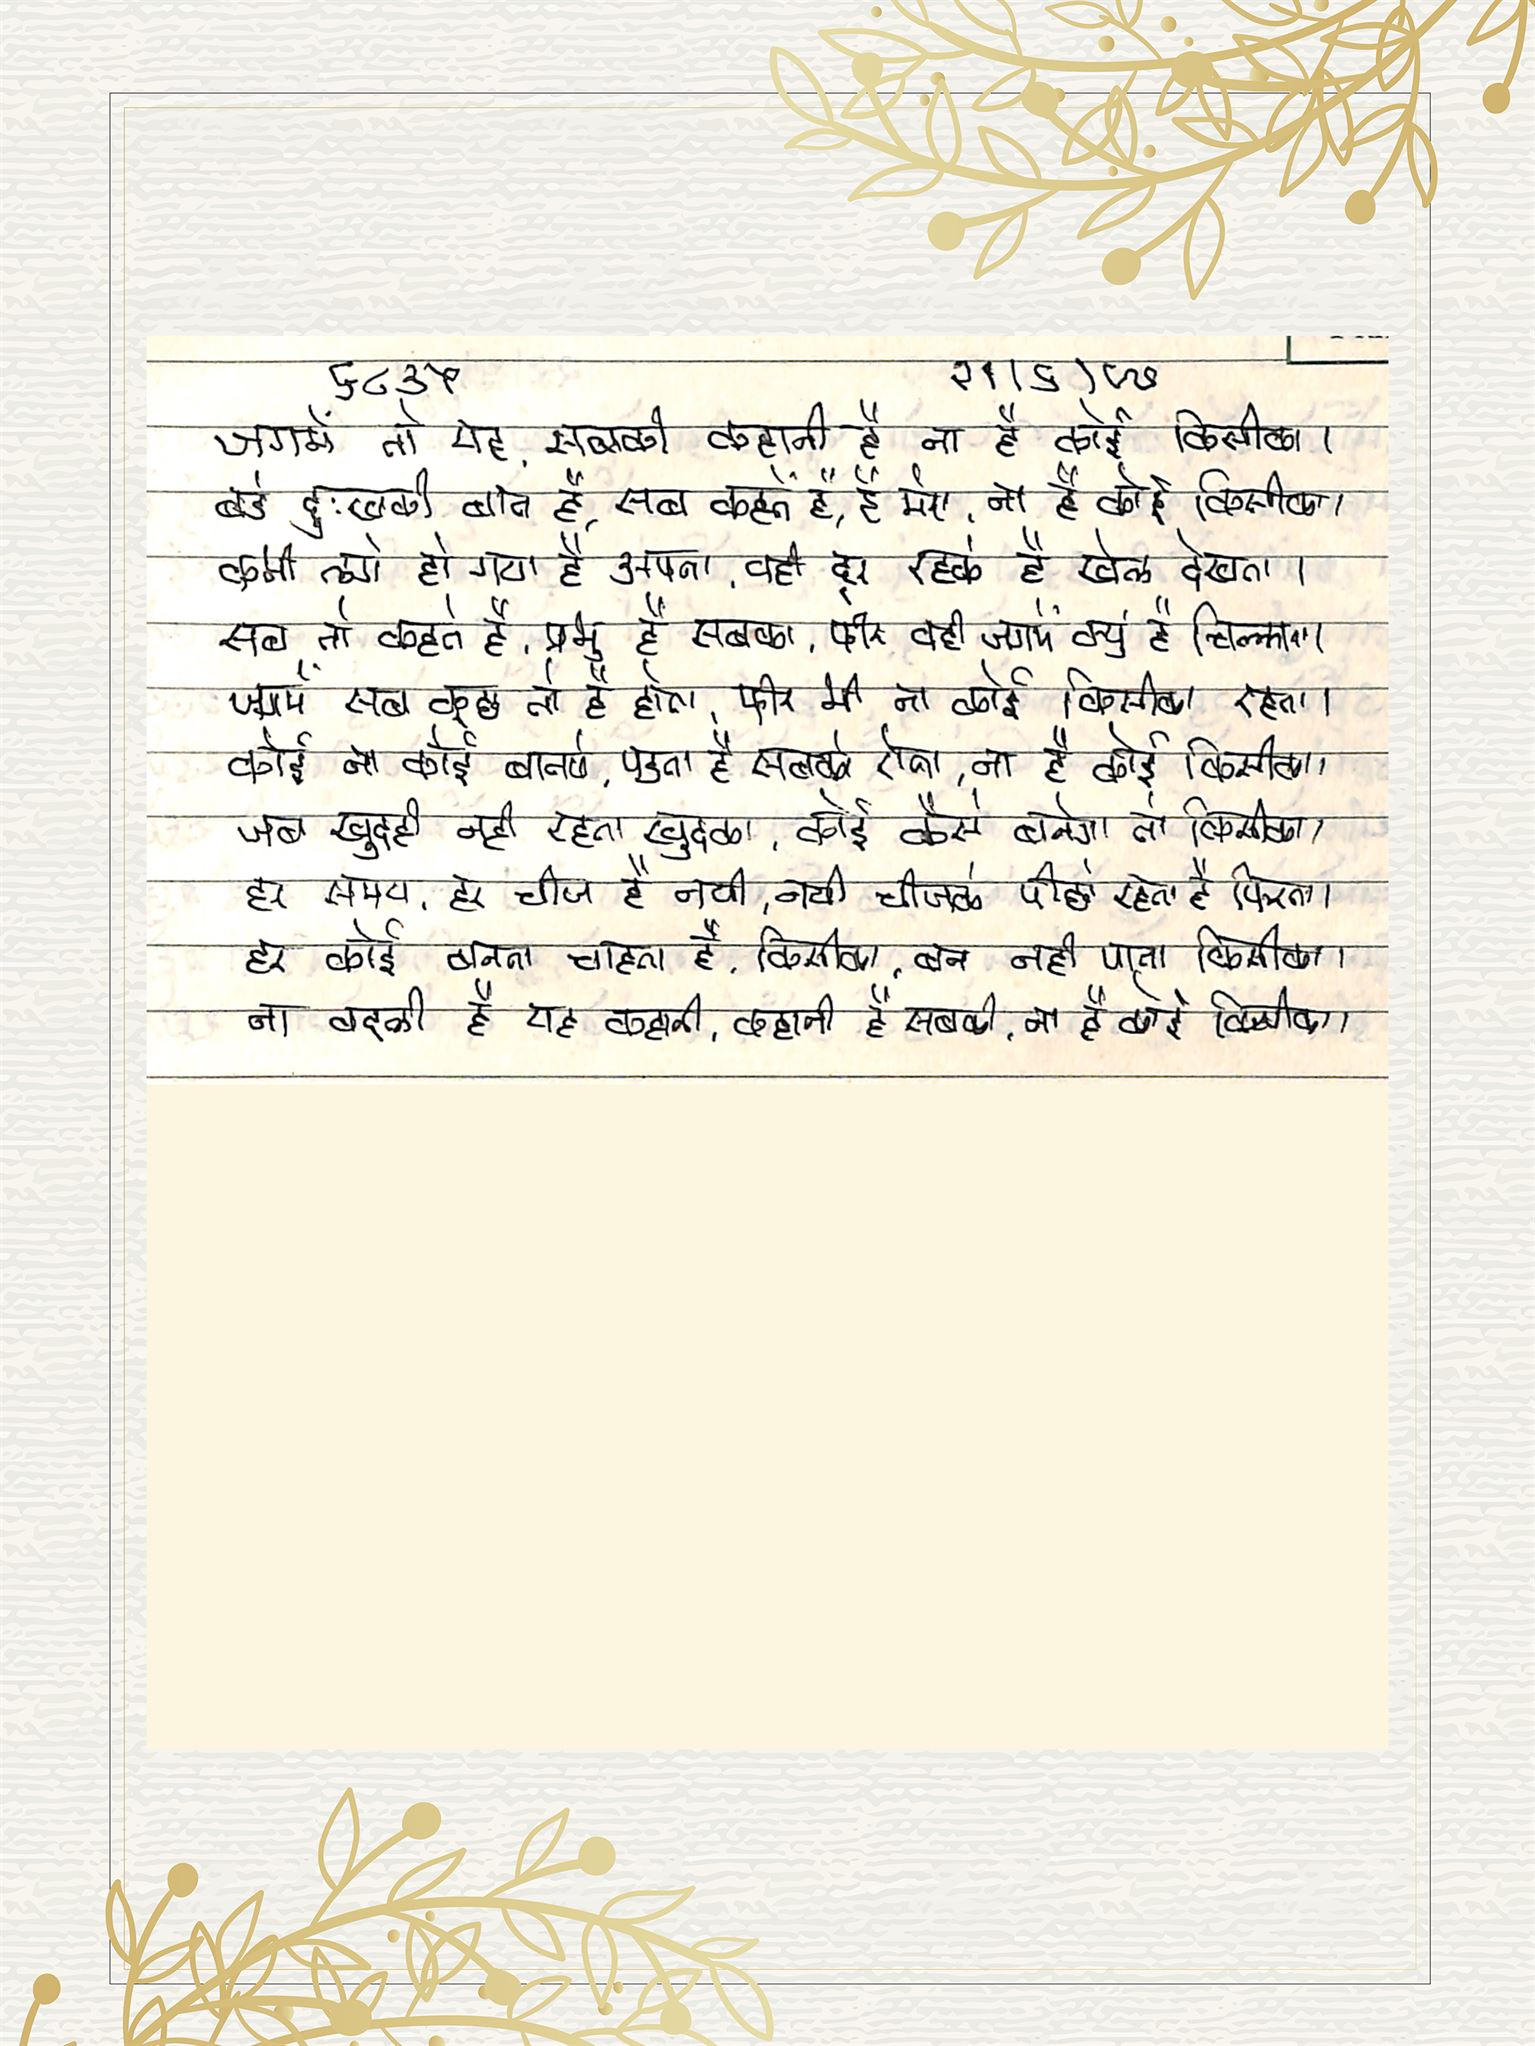 ६८३५ २१।६)९७
जगमें तो यह, सबकी कहानी है ना है कोई किसीका।
बडे दुःखकी बात है, सब कहते है, है मेरा, ना है कोई किसीका।
कभी लगे हो गया है अपना, वही दूर रहके है खेल देखता।
सब तो कहते है, प्रभु है सबका, फीर वही जगमें क्युं है चिल्लाता।
जगमें सब कुछ तो है होता, फीर भी ना कोई किसीका रहता।
कोई ना कोई बातपे, पडता है सबको रोना, ना है कोई किसीका।
जब खुदही नही रहता खुदका, कोई कैसे बनेगा तो किसीका।
हर समय, हर चीज है नयी, नयी चीजके पीछे रहता है फिरता।
हर कोई बनना चाहता है, किसीका, बन नही पाता किसीका।
ना बदली है यह कहानी, कहानी है सबकी, ना है कोई किसीका।